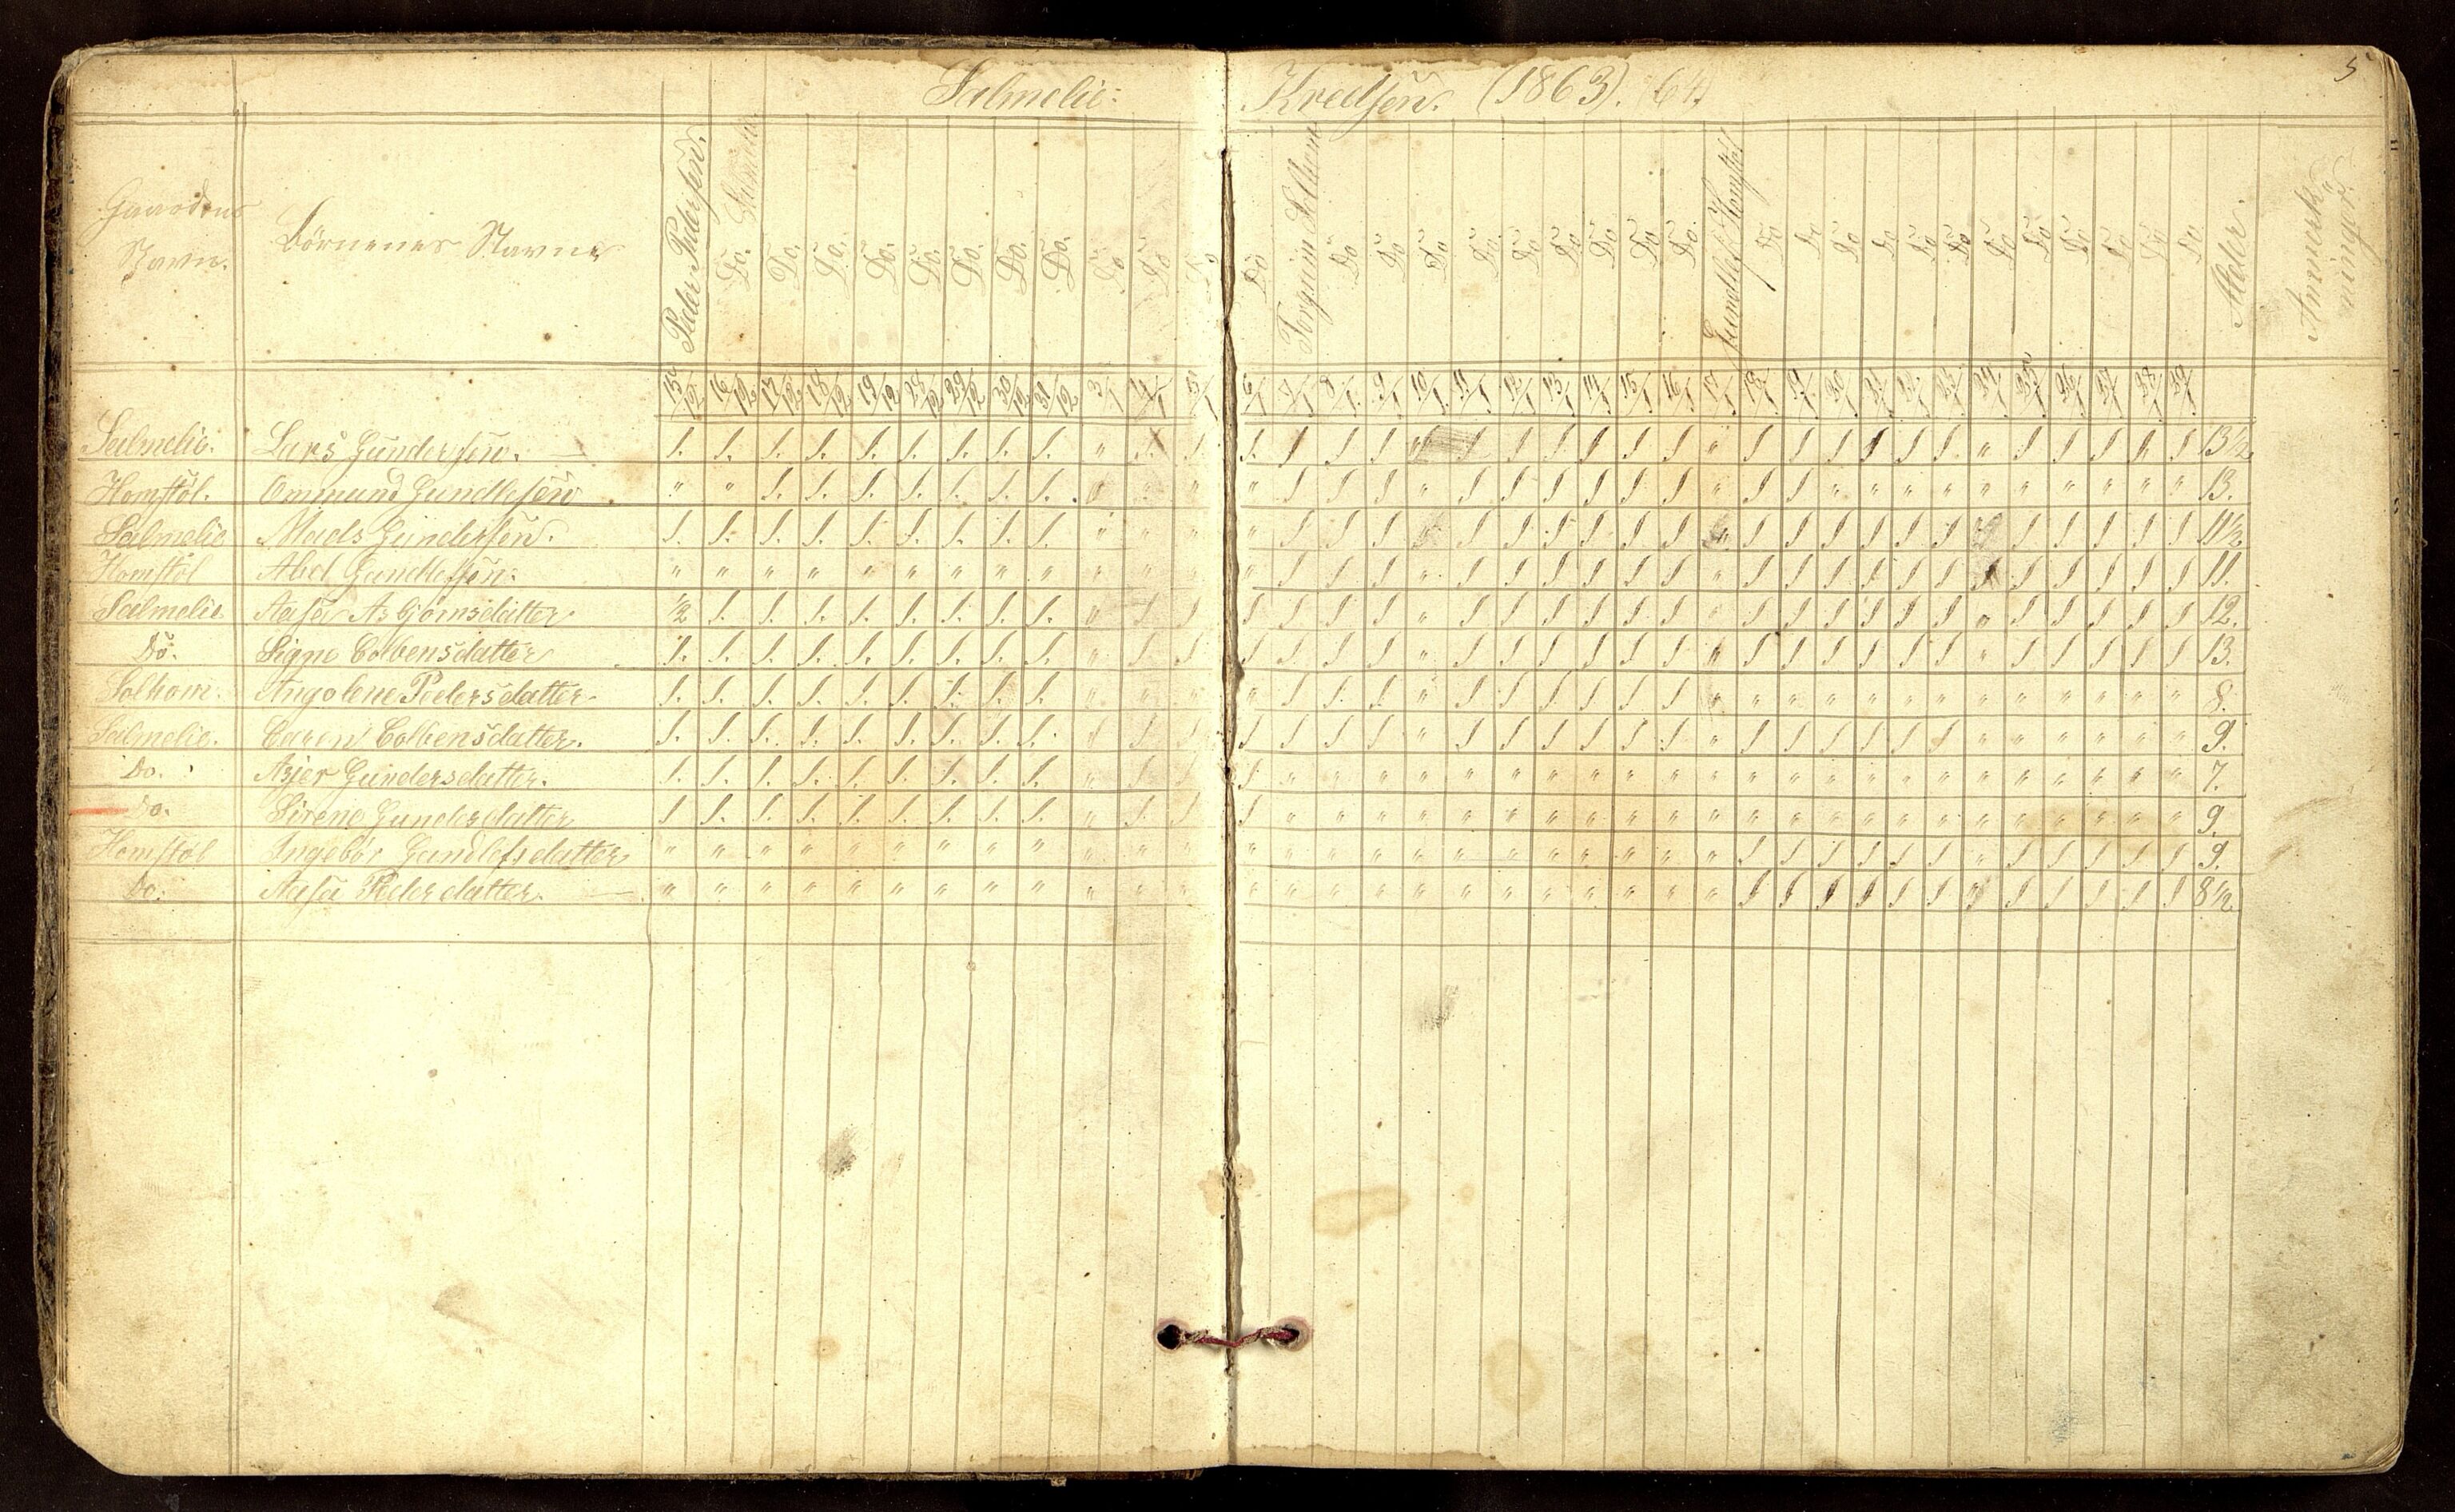 5
Salmelie: Kredsen. (1863). (64)
Gaardens Navn. Börnenes Navne Peder Pedersen. Salmelie Do. Do. Do. Do. Do. Do. Do. Do. Do. Do Do Do Torgrim Solhom Do Do Do Do Do Do Do Do Do Gundlef Homstöl Do Do Do Do Do Do Do Do Do Do Do Do Alder. Anmerkninger.
15/12 16/12 17/12 18/12 19/12 28/12 29/12 30/12 31/12 3/1 4/1 5/1 6/1 7/1 8/1 9/1 10/1 11/1 12/1 13/1 14/1 15/1 16/1 17/1 18/1 19/1 20/1 21/1 22/1 23/1 24/1 25/1 26/1 27/1 28/1 29/1
Salmelie. Lars Gundersen. 1. 1. 1. 1. 1. 1. 1. 1. 1. " 1. 1. 1. 1 1 1 " 1 1 1 1 1 1 " 1 1 1 1 1 1 " 1 1 1 1 1 13 1/2
Homstöl. Ommund Gundlefsen " " 1. 1. 1. 1. 1. 1. 1. " " " " 1 1 1 " 1 1 1 1 1 1 " 1 1 " " " " " " " " " " 13.
Salmelie Mads Gundersen. 1. 1. 1. 1. 1. 1. 1. 1. 1. " " " " 1 1 1 " 1 1 1 1 1 1 " 1 1 1 1 1 1 " 1 1 1 1 1 11 1/2
Homstöl Abel Gundlefsen. " " " " " " " " " " " " " 1 1 1 " 1 1 1 1 1 1 " 1 1 1 1 1 1 1 1 1 1 1 1 11.
Salmelie Aasa Asbjörnsdatter 1/2 1. 1. 1. 1. 1. 1. 1. 1. " 1 1 1 1 1 1 " 1 1 1 1 1 1 " 1 1 1 1 1 1 " 1 1 1 1 1 12.
Do. Signe Colbensdatter 1. 1. 1. 1. 1. 1. 1. 1. 1. " 1 1 1 1 1 1 " 1 1 1 1 1 1 " 1 1 1 1 1 1 " 1 1 1 1 1 13.
Solhom. Angolene Pedersdatter 1. 1. 1. 1. 1. 1. 1. 1. 1. " " " " 1 1 1 " 1 1 1 1 1 1 " " " " " " " " " " " " " 8.
Salmelie. Caren Colbensdatter. 1. 1. 1. 1. 1. 1. 1. 1. 1. " 1 1 1 1 1 1 " 1 1 1 1 1 1 " 1 1 1 1 1 1 " " " " " " 9.
Do. Asjer Gundersdatter. 1. 1. 1. 1. 1. 1. 1. 1. 1. " 1 1 1 " " " " " " " " " " " " " " " " " " " " " " " 7.
Do. Sirene Gundersdatter 1 1. 1. 1. 1. 1. 1. 1. 1. " 1. 1 1 " " " " " " " " " " " " " " " " " " " " " " " 9.
Homstöl Ingebör Gundlefsdatter " " " " " " " " " " " " " " " " " " " " " " " " 1 1 1 1 1 1 " 1 1 1 1 1 9.
Do. Aasa Pedersdatter. " " " " " " " " " " " " " " " " " " " " " " " " 1 1 1 1 1 1 " 1 1 1 1 1 8 1/2